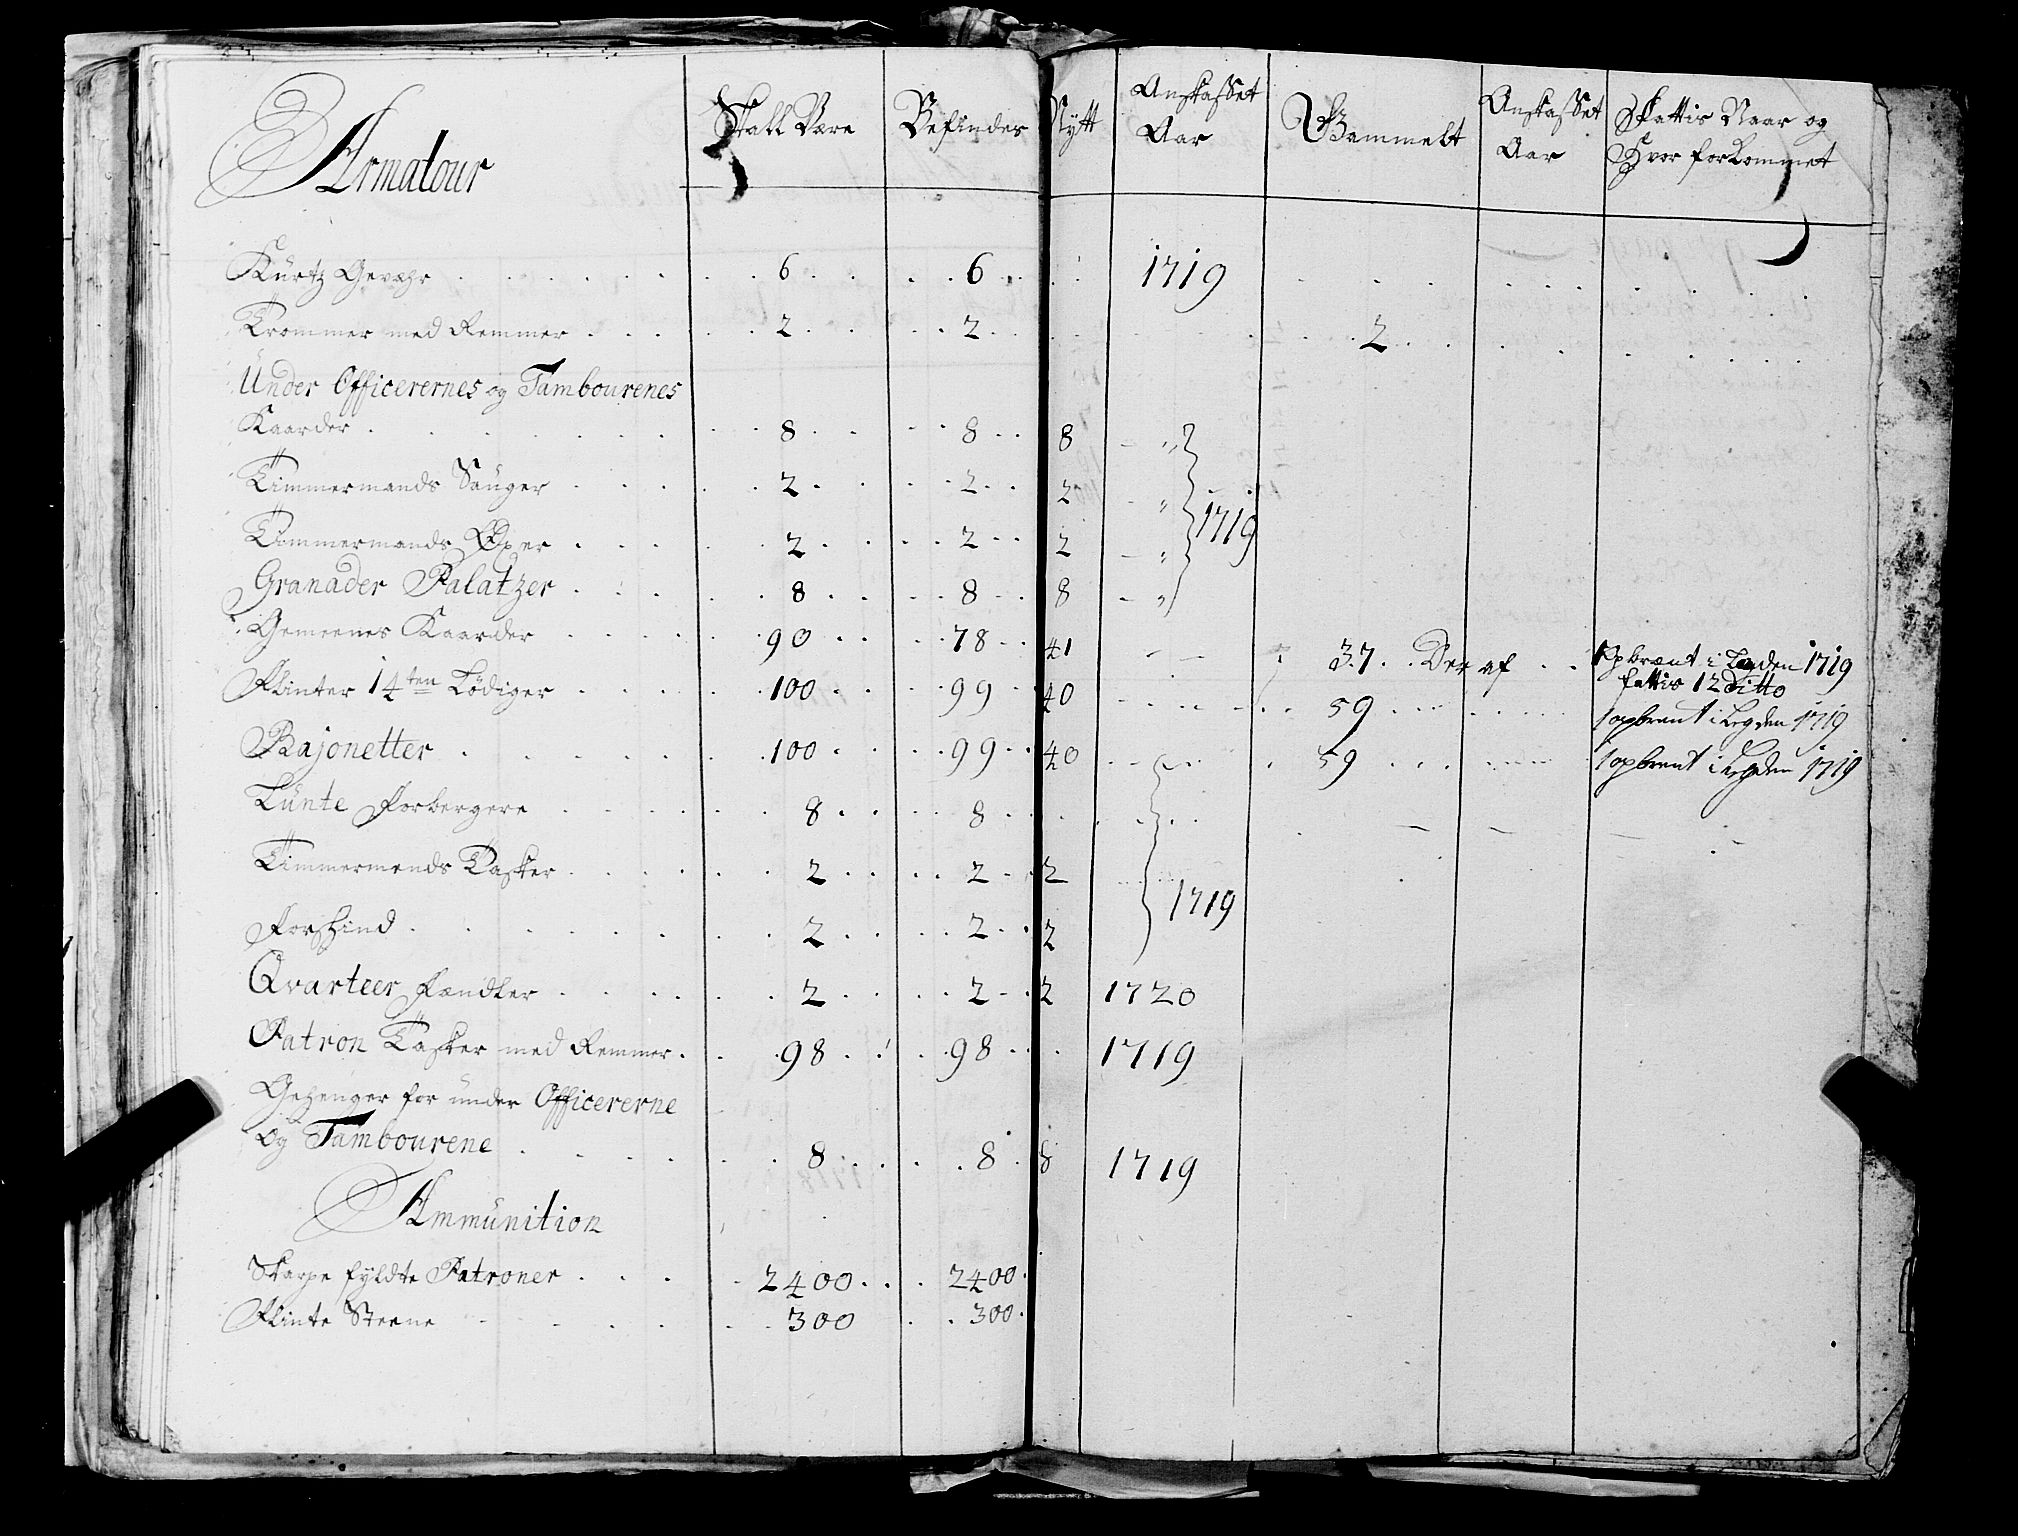 Armatour | Skall Være | Befindes | Nytt | Anskaffet Aar | Gammelt | Anskaffet Aar | Fattis Naar og Hvor forkommet
Kürtz Gevæhr | 6 | 6 | | 1719
Trommer med Remmer | 2 | 2 | | | 2
Ünder Officerernes og Tambourenes
Kaarder | 8 | 8 | 8 | "
Timmermands Sauger | 2 | 2 | 2 | " 1719
Timmermands Øxer | 2 | 2 | 2 | "
Granader Palatzer | 8 | 8 | 8 | "
Gemeenes Kaarder | 90 | 78 | 41 | | 37 | Der af | Opbrænt i Legden 1719
fattis 12 ditto
Flinter 14ten Lödiger | 100 | 99 | 40 | | 59 | | 1 opbrent i Legden 1719
Bajonetter | 100 | 99 | 40 | | 59 | | 1 opbrent i Legden 1719
Lünte Forbergere | 8 | 8
Timmermends Tasker | 2 | 2 | 2 | 1719
Forskind | 2 | 2 | 2
Qvarteer Fændker | 2 | 2 | 2 | 1720
Patron Tasker med Remmer | 98 | 98 | | 1719
Gehenger for ünder Officererne
Og Tambourene | 8 | 8 | 8 | 1719
Ammünition
Skarpe fyldte Patroner | 2400 | 2400
Flinte Steene | 300 | 300